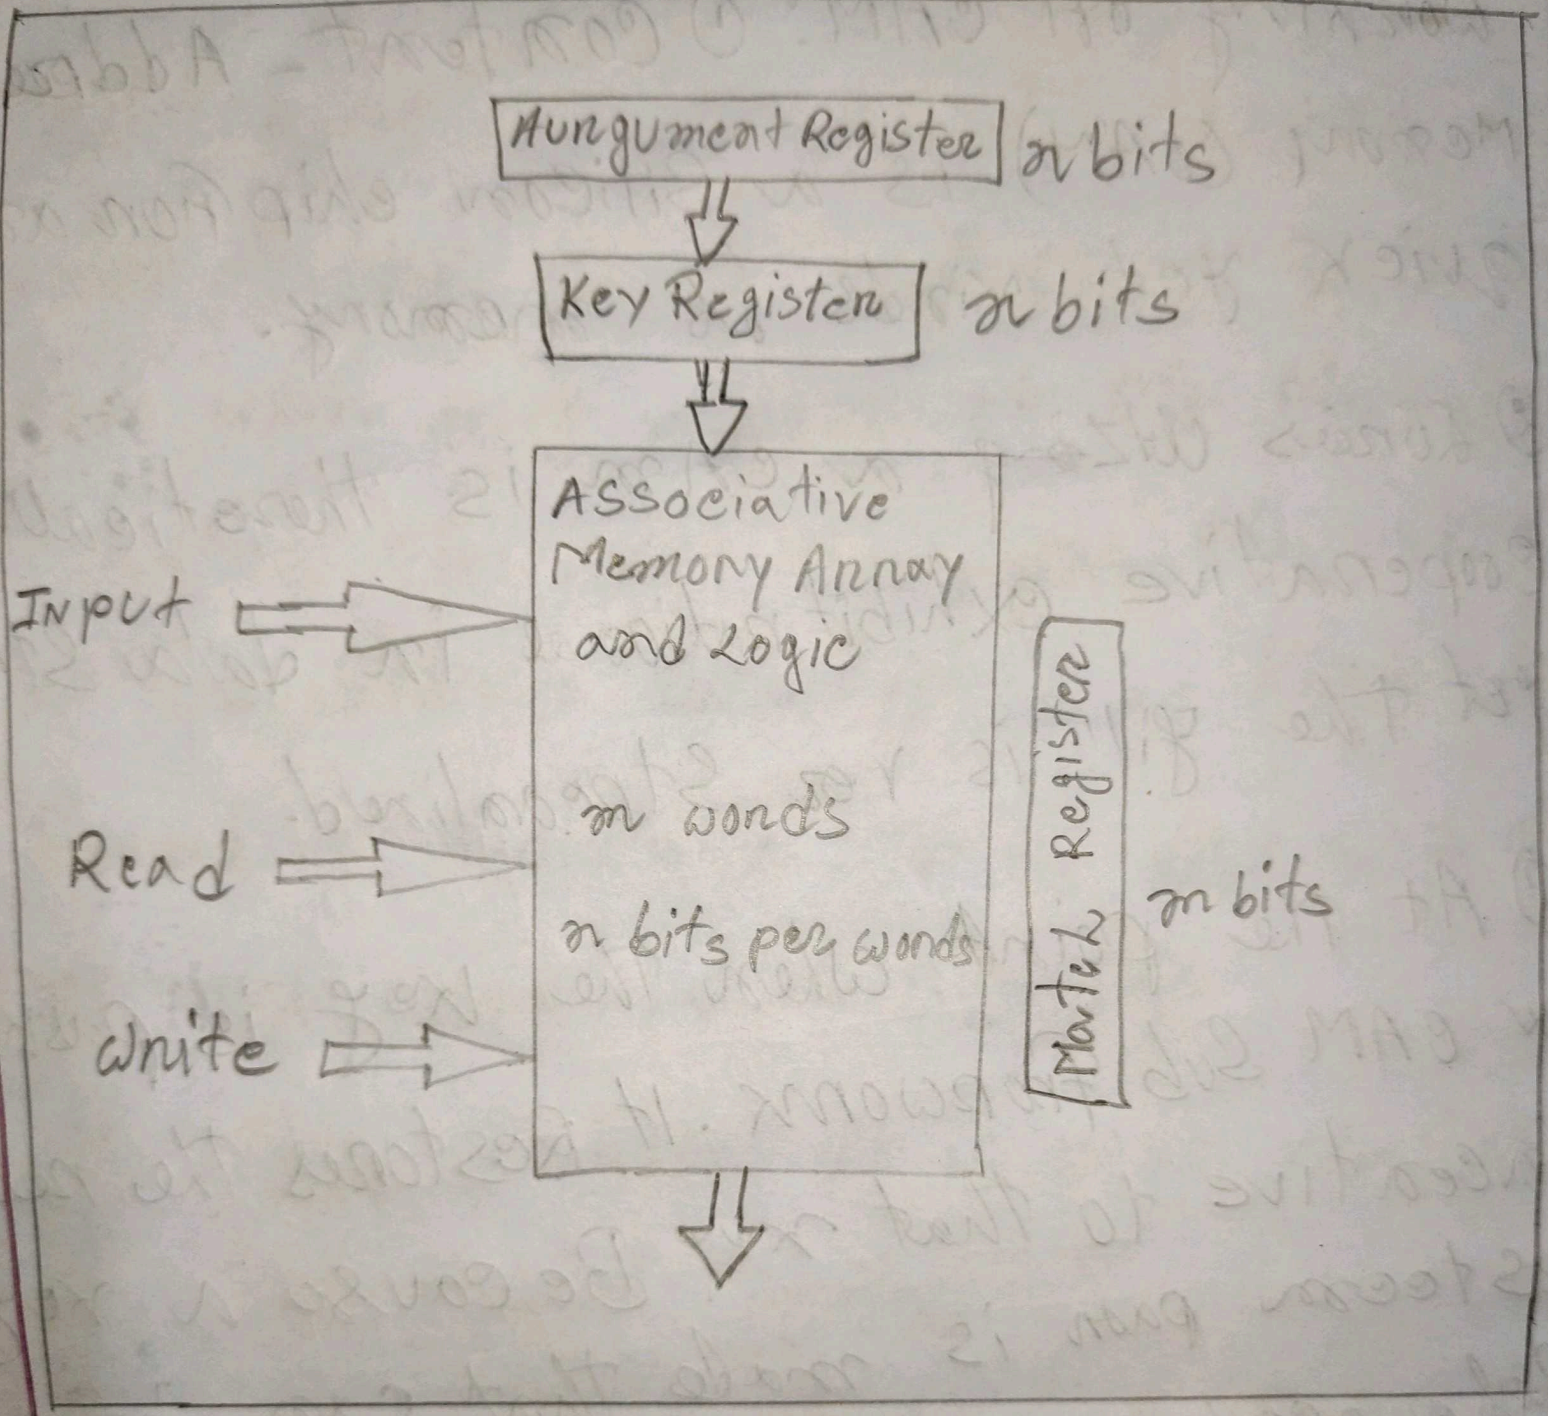 Aurgument Register n bits
Key Register n bits
Associative
Memory Array
and Logic
Input
m words
Read
n bits per words
Write
Match Register
m bits